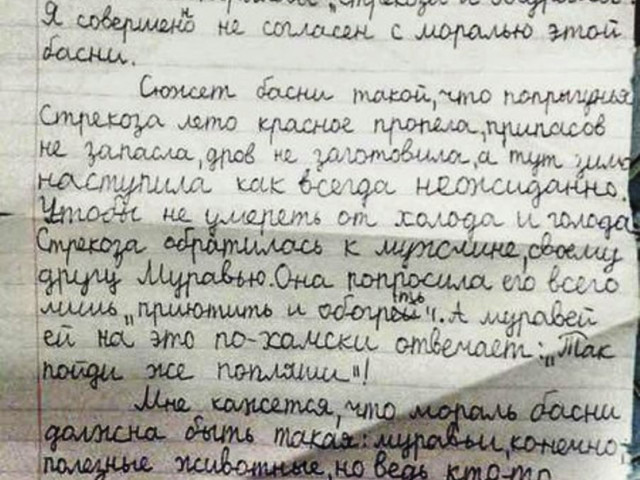 „Стрекоза и
Я совершенно не согласен с моралью этой
басни.
Сюжет басни такой, что попрыгунья
Стрекоза лето красное пропела, припасов
не запасла, дров не заготовила, а тут зима
наступила как всегда неожиданно.
Чтобы не умереть от холода и голода
Стрекоза обратилась к мужчине, своему
другу Муравью. Она попросила его всего
лишь „приютить и обогреть". А муравей
ей на это по-хамски отвечает: „Так
пойди же попляши"!
Мне кажется, что мораль басни
должна быть такая: муравьи, конечно,
полезные животные, но ведь кто-то